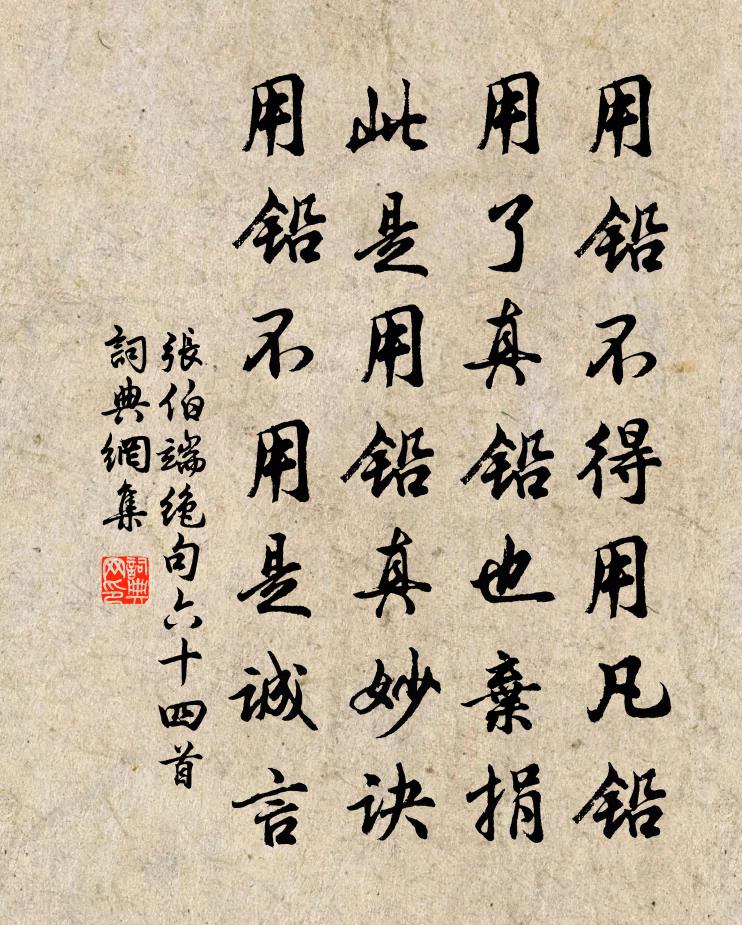 用铅不得用凡铅
用了真铅也棄捐
此是用铅真妙诀
用铅不用是诚言
張伯端绝句六十四首
詞典網集
詞典网印